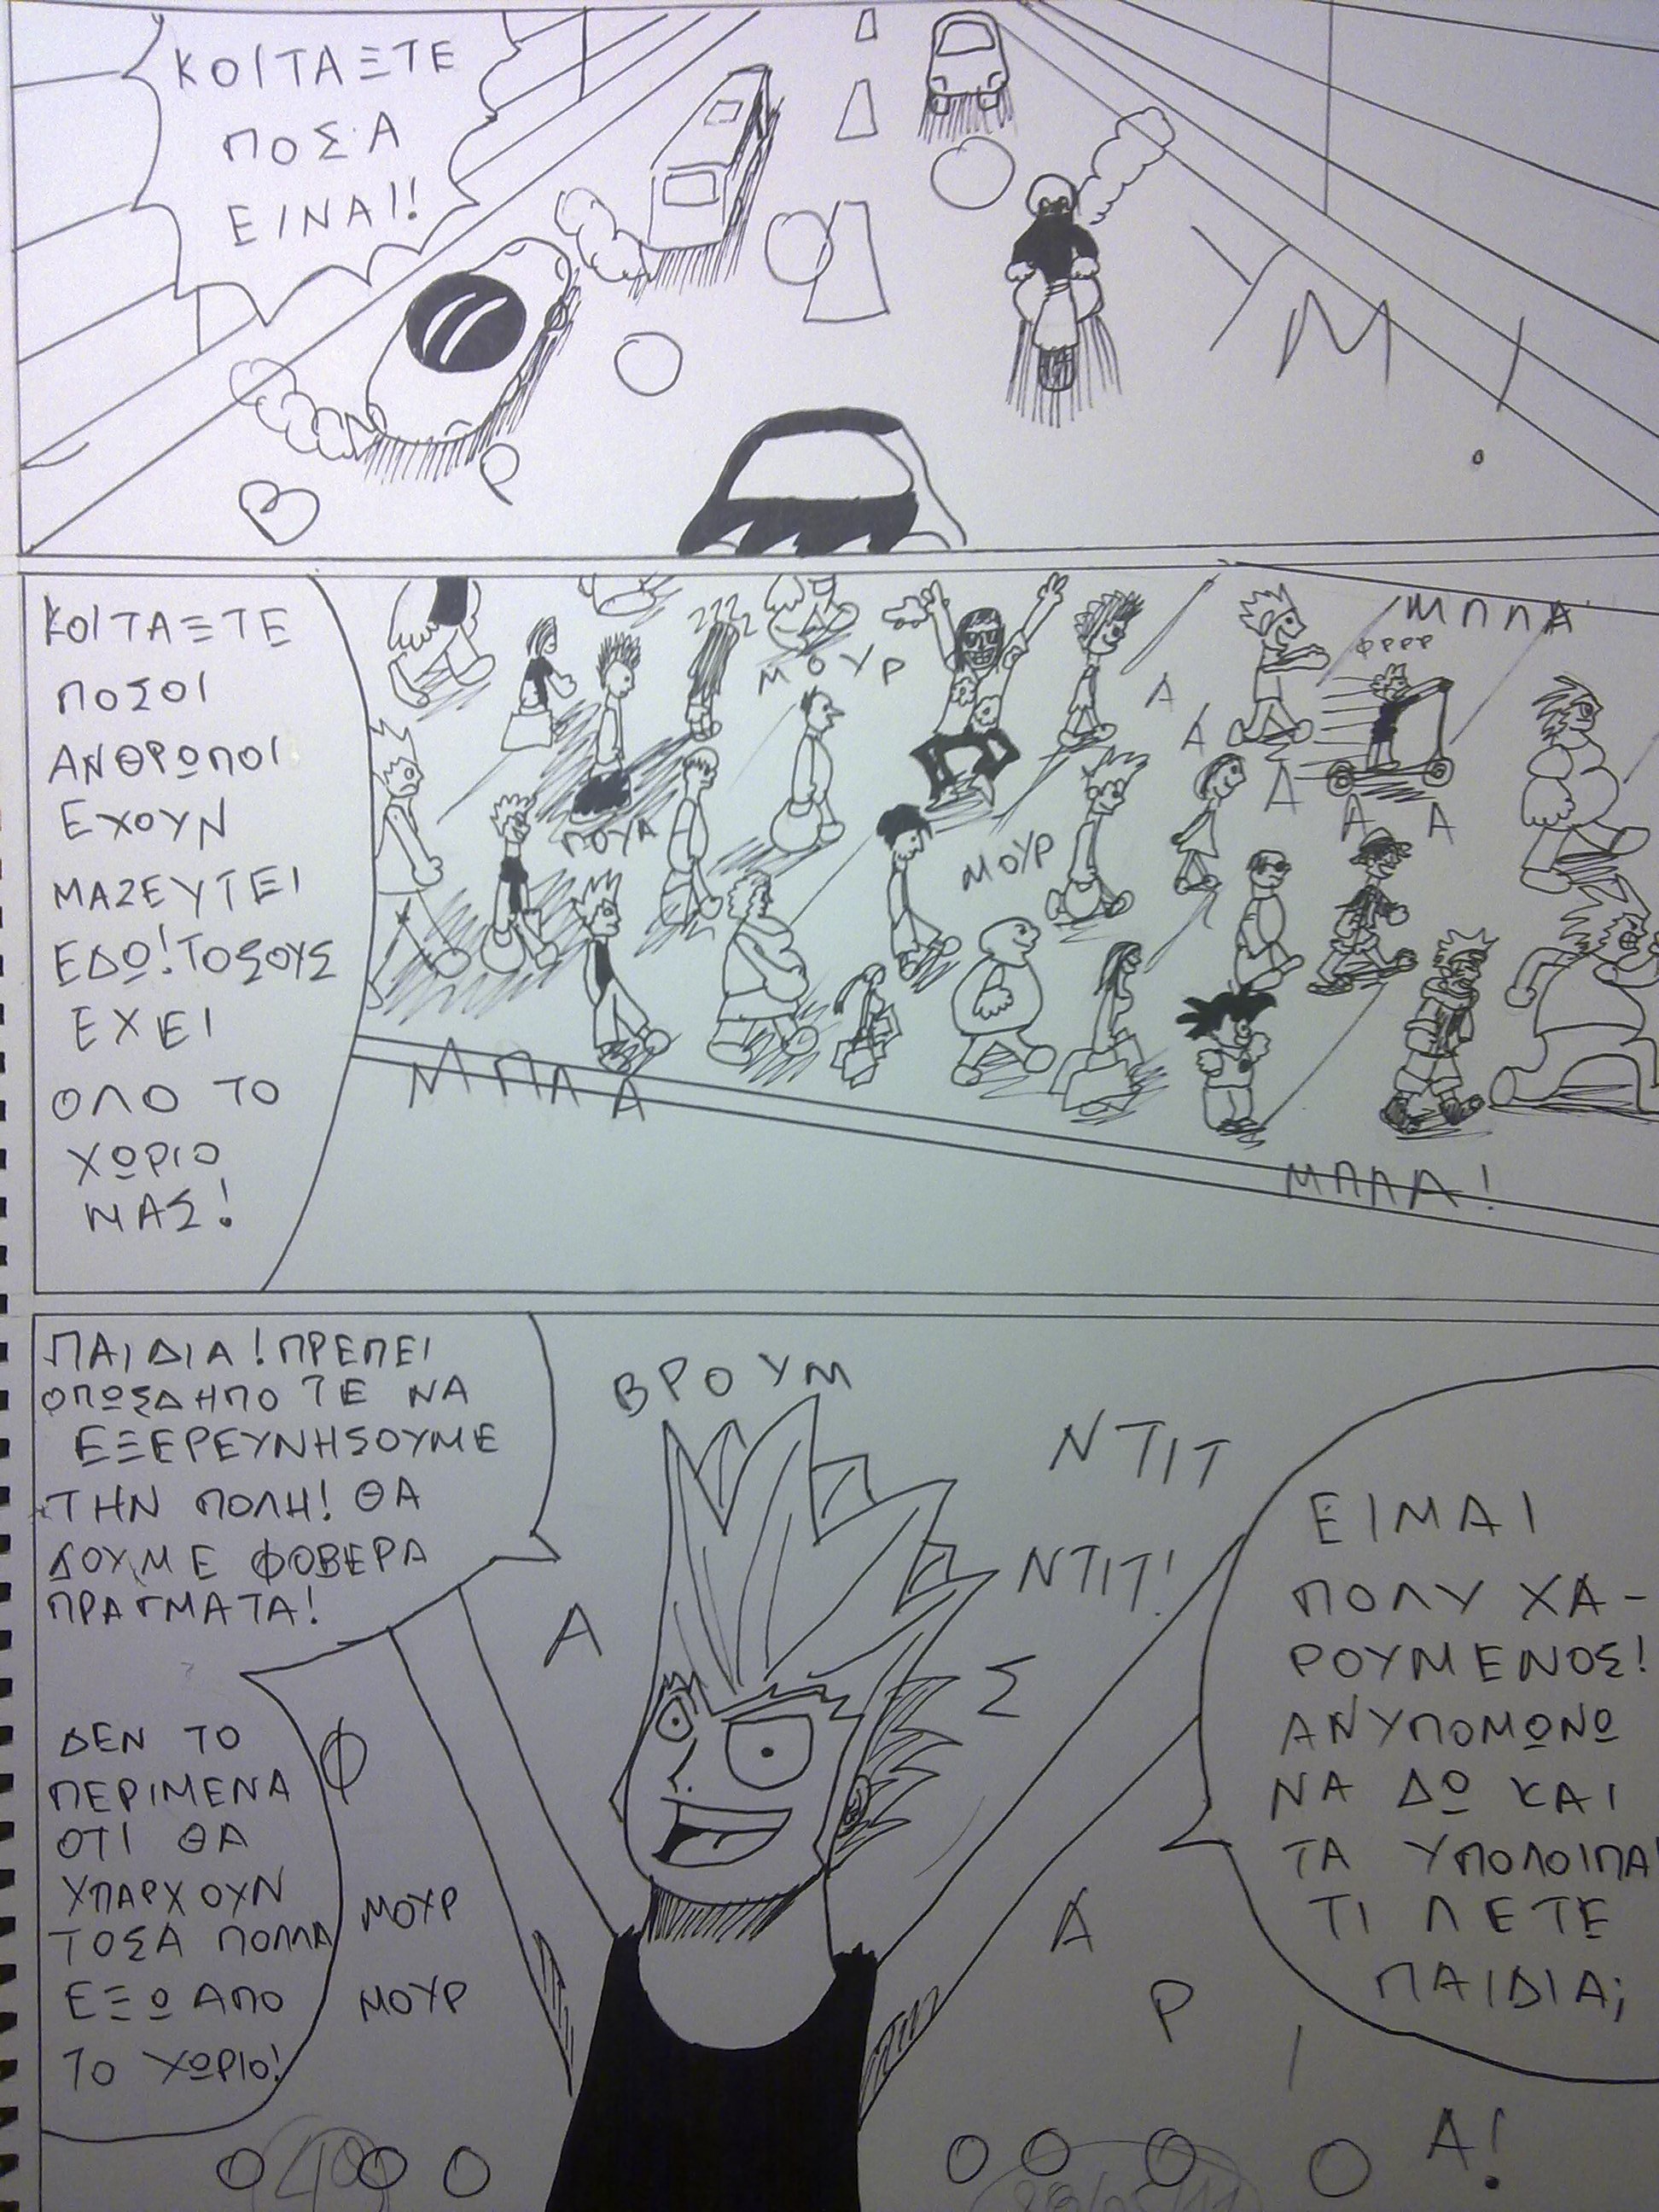 ΚΟΙΤΑΞΤΕ
ΠΟΣΑ
ΕΙΝΑΙ!
Β Ρ Ο Ο Ο Υ Μ Ι .
ΚΟΙΤΑΞΤΕ
ΠΟΣΟΙ
ΑΝΘΡΩΠΟΙ
ΕΧΟΥΝ
ΜΑΖΕΥΤΕΙ
ΕΔΩ! ΤΟΣΟΥΣ
ΕΧΕΙ
ΟΛΟ ΤΟ
ΧΩΡΙΟ
ΜΑΣ!
ΜΟΥΡ
ΜΠΛΑ
ΦΡΡΡ
Α Α Α Α Α
ΠΟΥΑ
ΜΟΥΡ
ΜΠΛΑ
ΜΠΛΑ!
ΠΑΙΔΙΑ! ΠΡΕΠΕΙ
ΟΠΩΣΔΗΠΟΤΕ ΝΑ
ΕΞΕΡΕΥΝΗΣΟΥΜΕ
ΤΗΝ ΠΟΛΗ! ΘΑ
ΔΟΥΜΕ ΦΟΒΕΡΑ
ΠΡΑΓΜΑΤΑ!
ΔΕΝ ΤΟ
ΠΕΡΙΜΕΝΑ
ΟΤΙ ΘΑ
ΥΠΑΡΧΟΥΝ
ΤΟΣΑ ΠΟΛΛΑ
ΕΞΩ ΑΠΟ
ΤΟ ΧΩΡΙΟ!
ΒΡΟΥΜ
ΝΤΙΤ
ΝΤΙΤ!
ΜΟΥΡ
ΜΟΥΡ
Φ Α Σ Α Ρ Ι Α!
ΕΙΜΑΙ
ΠΟΛΥ ΧΑ-
ΡΟΥΜΕΝΟΣ!
ΑΝΥΠΟΜΩΝΩ
ΝΑ ΔΩ ΚΑΙ
ΤΑ ΥΠΟΛΟΙΠΑ!
ΤΙ ΛΕΤΕ
ΠΑΙΔΙΑ;
Ο Ο Ο Ο Ο Ο Ο